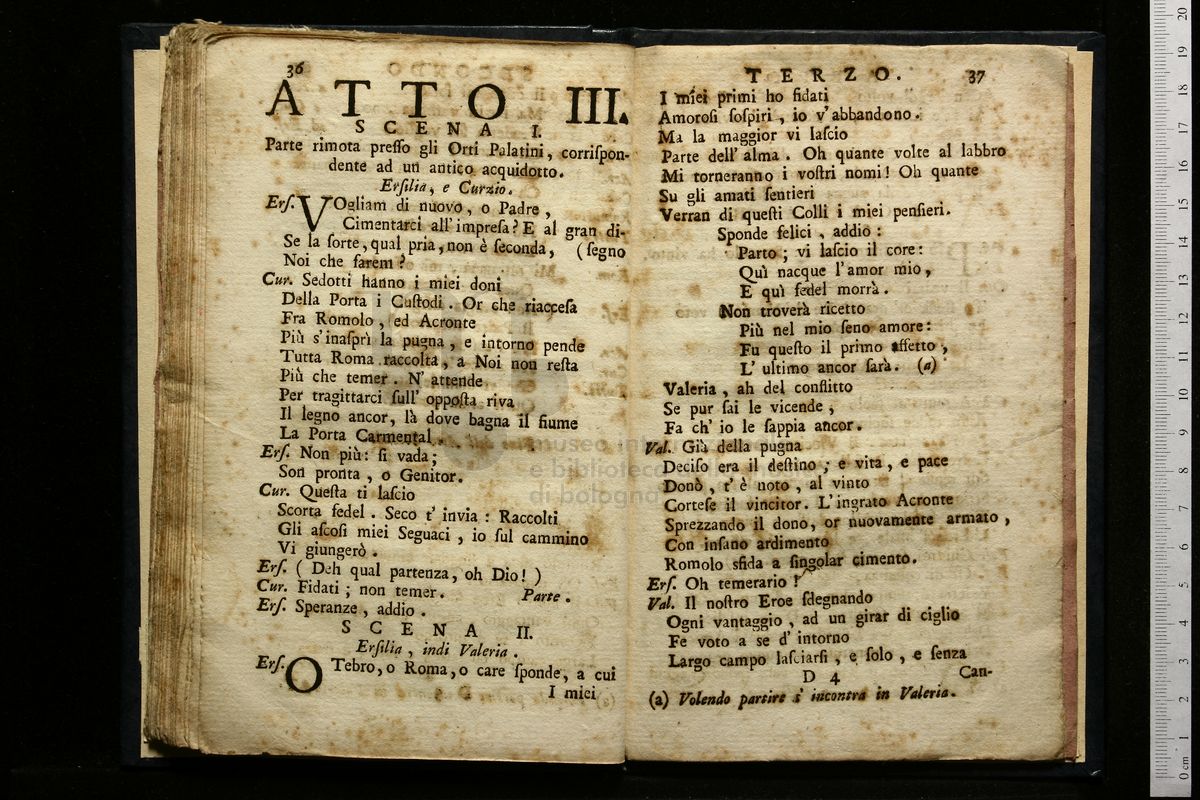 36
ATTO III.
SCENA I.
Parte rimota presso gli Orti Palatini, corrispon-
dente ad un antico acquidotto.
Ersilia, e Curzio.
Ers. VOgliam di nuovo, o Padre,
Cimentarci all' impresa? E al gran di-
Se la sorte, qual pria, non è seconda, (segno
Noi che farem?
Cur. Sedotti hanno i miei doni
Della Porta i Custodi. Or che riaccesa
Fra Romolo, ed Acronte
Più s'inasprì la pugna, e intorno pende
Tutta Roma raccolta, a Noi non resta
Più che temer. N' attende
Per tragittarci sull' opposta riva
Il legno ancor, là dove bagna il fiume
La Porta Carmental.
Ers. Non più: si vada;
Son pronta, o Genitor.
Cur. Questa ti lascio
Scorta fedel. Seco t' invia: Raccolti
Gli ascosi miei Seguaci, io sul cammino
Vi giungerò.
Ers. (Deh qual partenza, oh Dio!)
Cur. Fidati; non temer. Parte.
Ers. Speranze, addio.
SCENA II.
Ersilia, indi Valeria.
Ers. O Tebro, o Roma, o care sponde, a cui
I miei
TERZO. 37
I miei primi ho fidati
Amorosi sospiri, io v'abbandono.
Ma la maggior vi lascio
Parte dell' alma. Oh quante volte al labbro
Mi torneranno i vostri nomi! Oh quante
Su gli amati sentieri
Verran di questi Colli i miei pensieri.
Sponde felici, addio:
Parto; vi lascio il core:
Quì nacque l'amor mio,
E quì fedel morrà.
Non troverà ricetto
Più nel mio seno amore:
Fu questo il primo affetto,
L' ultimo ancor sarà. (a)
Valeria, ah del conflitto
Se pur sai le vicende,
Fa ch' io le sappia ancor.
Val. Già della pugna
Deciso era il destino; e vita, e pace
Donò, t' è noto, al vinto
Cortese il vincitor. L'ingrato Acronte
Sprezzando il dono, or nuovamente armato,
Con insano ardimento
Romolo sfida a singolar cimento.
Ers. Oh temerario!
Val. Il nostro Eroe sdegnando
Ogni vantaggio, ad un girar di ciglio
Fe voto a se d' intorno
Largo campo lasciarsi, e solo, e senza
D 4 Can-
(a) Volendo partire s' incontra in Valeria.
museo int
e biblioteca
di bologna
0 cm 1 2 3 4 5 6 7 8 9 10 11 12 13 14 15 16 17 18 19 20